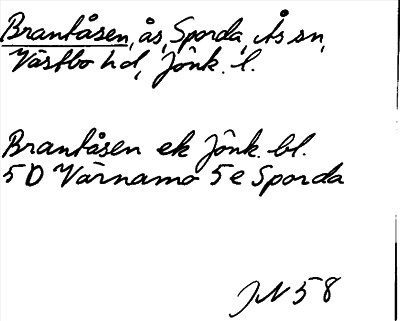 Brantåsen, ås, Sporda, Ås sn,
Västbo hd, Jönk. l.
Brantåsen ek Jönk. bl.
5 D Värnamo 5 e Sporda
JN 58